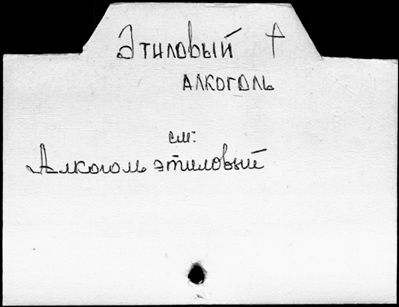 Этиловый †
алкоголь
см:
Алкоголь этиловый